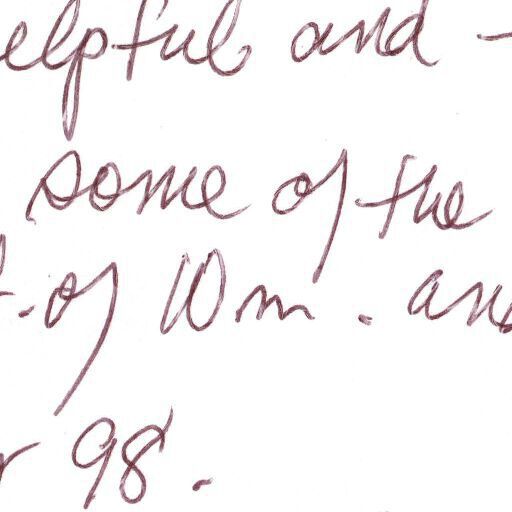 elpful and
some of the
. of 10m. and
98.